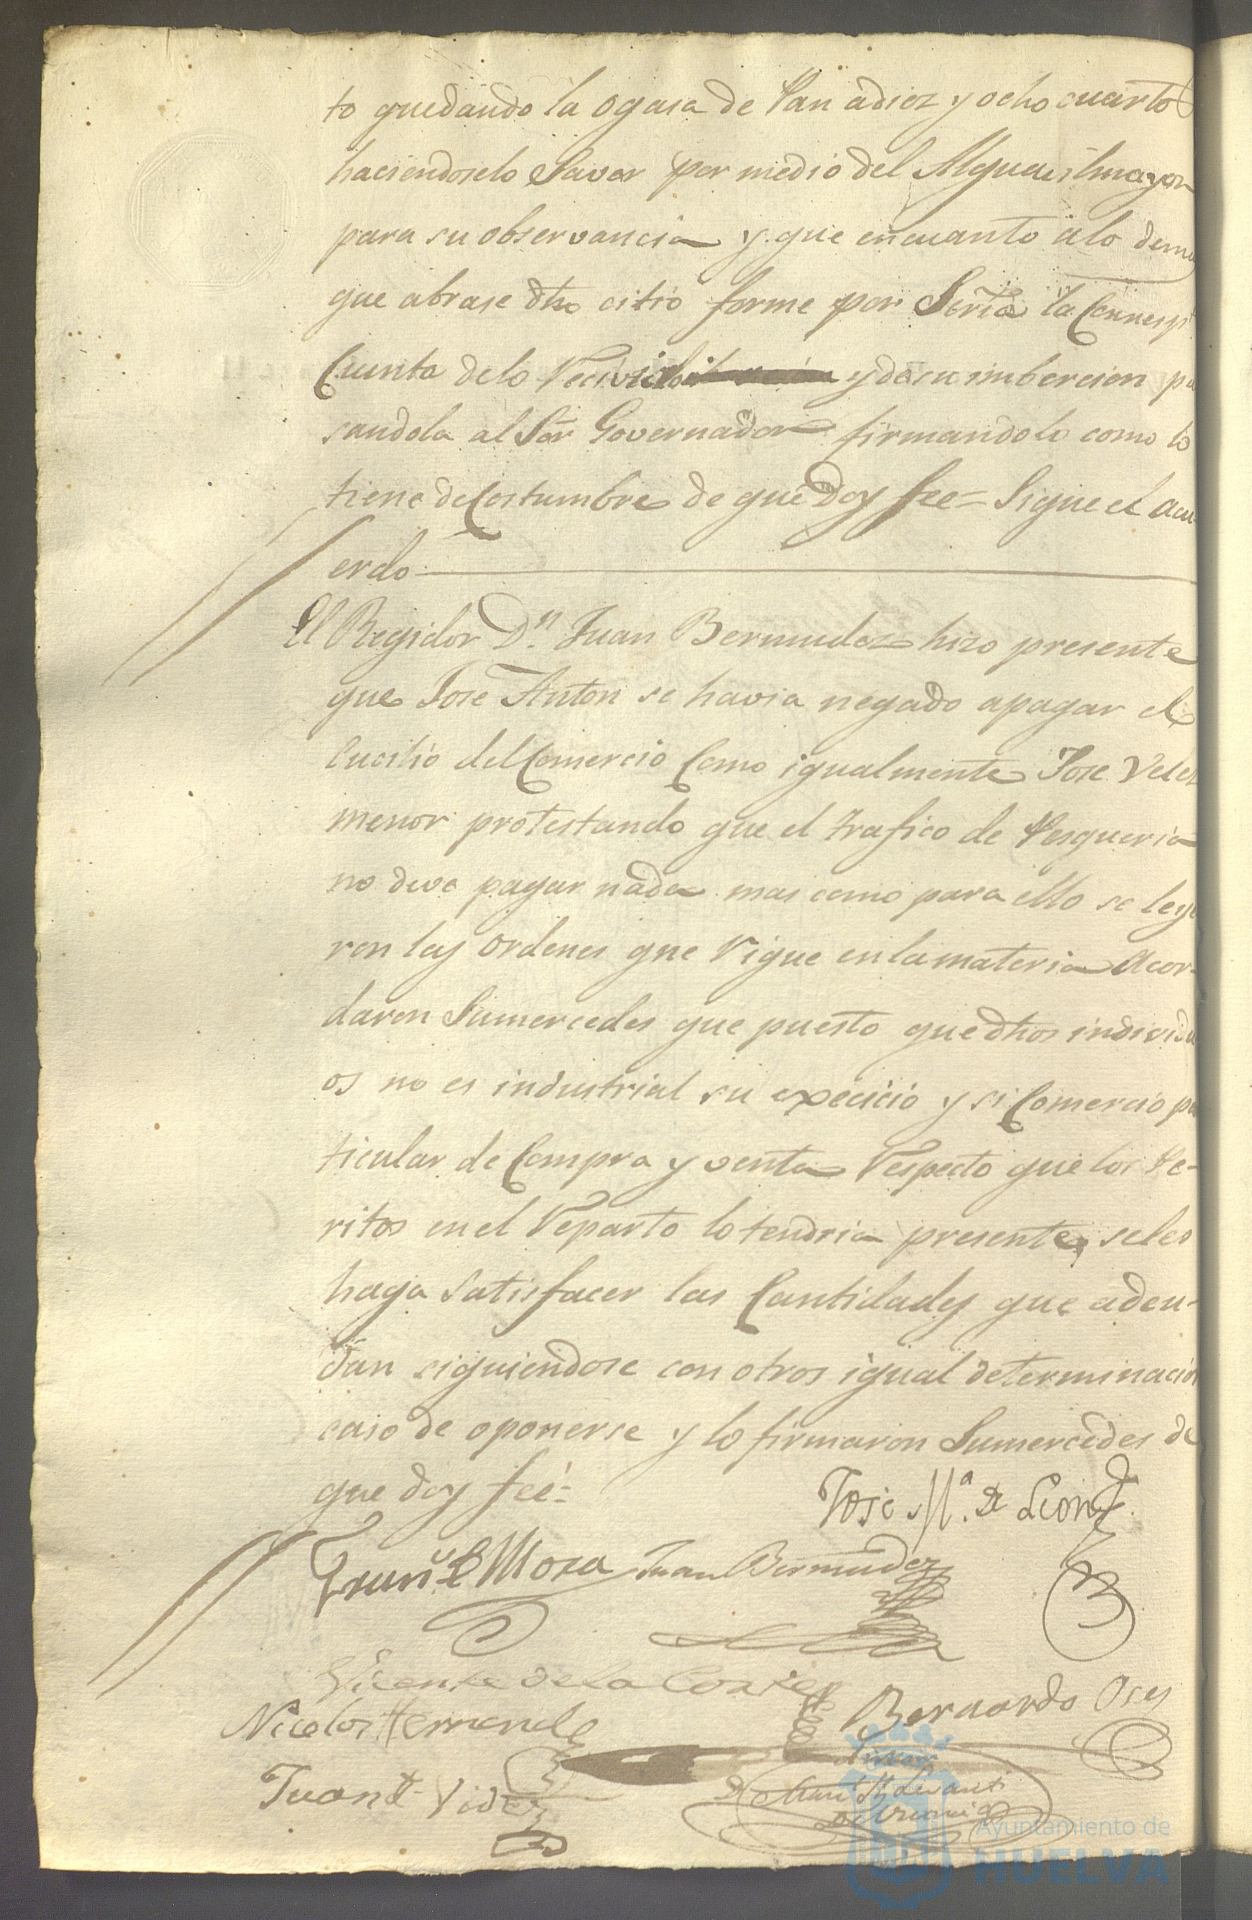 to quedando la ogasa de Pan adiez y ocho cuarto
haciendoselo Saver por medio del Alguacil mayor
para su observancia y que encuanto alo dema
que abrase dho citio forme por Sectria la Corresp
Cuenta delo Recivido y dasu imbercion pa
sandola al Sor Governador firmandolo como lo
tiene deCostumbre de que Doy fee= Sigue el acu-
erdo
El Regidor Dn Juan Bermudez hizo presente
que Jose Anton se havia negado apagar el
Cucilio delComercio Como igualmente Jose Velez
menor protestando que el trafico de Pesqueria
no deve pagar nada mas como para ello se leye
ron las ordenes que Rigue enlamateria Acor-
daron Sumercedes que puesto quedhos individu
os no es industrial su execicio y si Comercio pa
ticular de Compra y venta Respecto que los Pe-
ritos enel Reparto lo tendria presente, seles
haga Satisfacer las Cantidades que adeu-
dan siguiendose con otros igual determinacion
caso de oponerse y lo firmaron Sumercedes de
que doy feé=
Jose Ma. de Leon
Franco de Mora Juan Bermudez
Vicente de la Corte
Bernardo Oses
Nicolas Hernande
Juan Vides
Ayuntamiento de
HUELVA